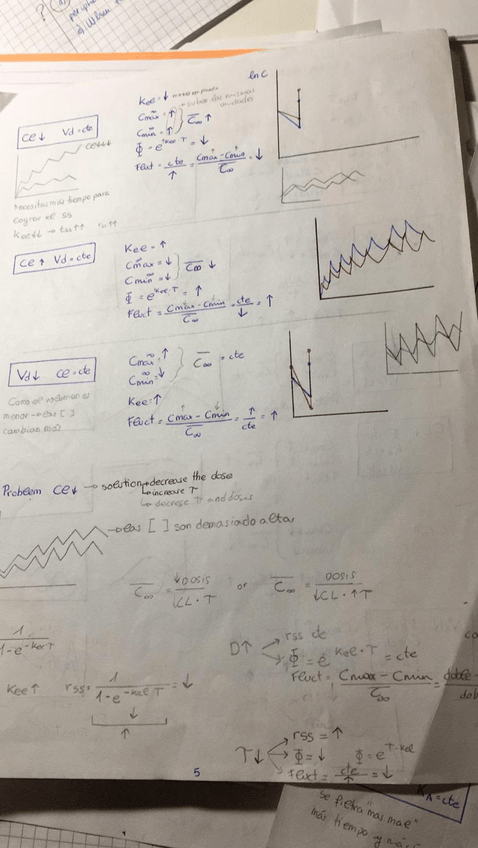 ln C
Kel = ↓
Cmax = ↑
Cmin = ↑
C∞ ↑
Φ = e^kel·T = ↓
Fluct = cte/↑ = Cmax - Cmin/C∞ = ↓
Ce ↓ Vd = cte
Ce ↓↓↓
Necesitas más tiempo para
lograr el ss
Ce ↑ Vd = cte
Kel = ↑
Cmax = ↓
Cmin = ↓
C∞ ↓
Φ = e^kel·T = ↑
Fluct = Cmax - Cmin/C∞ = cte/↓ = ↑
Vd ↓ Ce = cte
Como el volumen es
menor → las [ ]
cambian más
Cmax ↑
Cmin ↓
C∞ = cte
Kel = ↑
Fluct = Cmax - Cmin/C∞ = ↑/cte = ↑
Problem Ce ↓ → solution → decrease the dose
→ increase T
→ decrese T and dosis
→ las [ ] son demasiado altas
C∞ = ↓DOSIS/↓CL·T or C∞ = DOSIS/↓CL·↑T
1/1-e^-kel·T
Kel ↑ rss = 1/1-e^-kel·T = ↓
D ↑
rss
Φ = e^kel·T = cte
Fluct = Cmax - Cmin/C∞ = doble
T ↓
rss = ↑
Φ = ↓ Φ = e^T·kel
Fluct = cte/↑ = ↓
5
= cte
más tiempo y